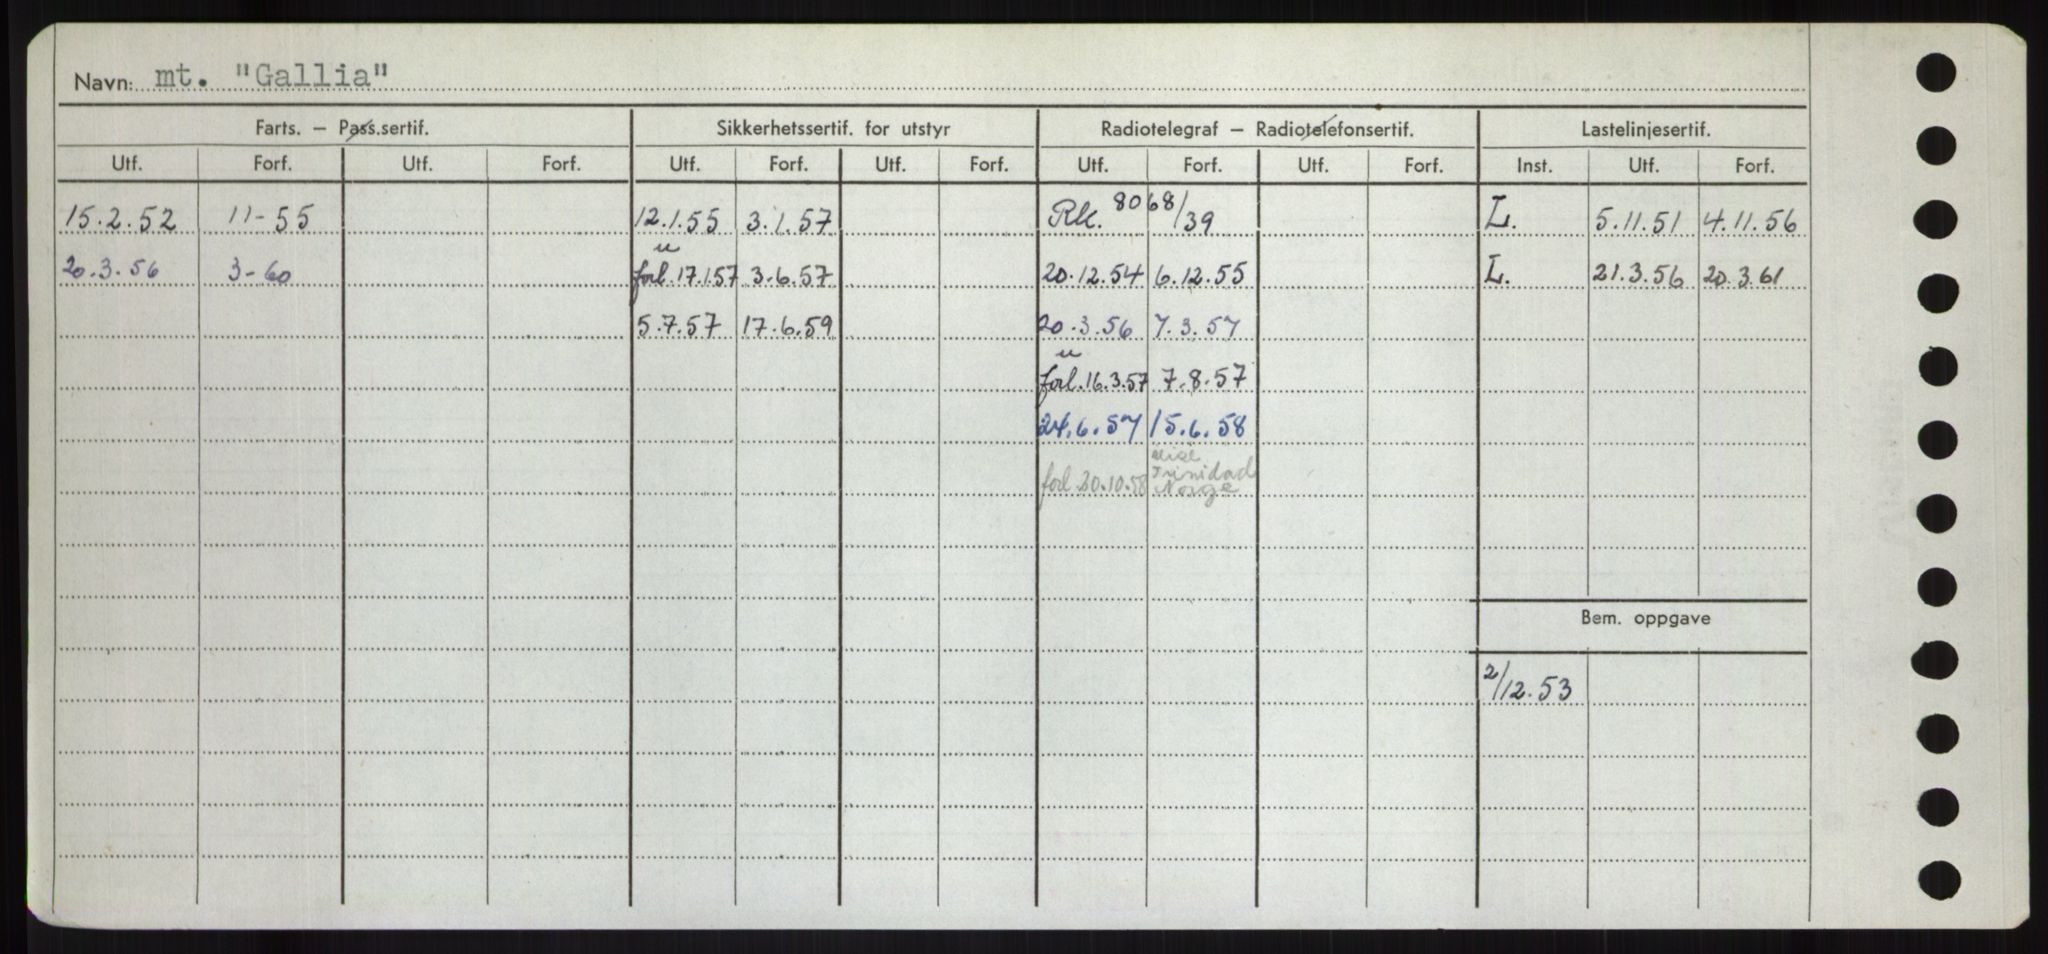 Navn: mt. "Gallia"
Farts. – Pass.sertif. Sikkerhetssertif. for utstyr Radiotelegraf – Radiotelefonsertif. Lastelinjesertif.
Utf. Forf. Utf. Forf. Utf. Forf. Utf. Forf. Utf. Forf. Utf. Forf. Inst. Utf. Forf.
15.2.52 11-55 12.1.55 3.1.57 Rk. 8068/39 L. 5.11.51 4.11.56
20.3.56 3-60 forl. 17.1.57 3.6.57 20.12.54 6.12.55 L. 21.3.56 20.3.61
5.7.57 17.6.59 20.3.56 7.3.57
forl. 16.3.57 7.8.57
24.6.57 15.6.58
forl 20.10.58 Trinidad
Norge
Bem. oppgave
2/12.53